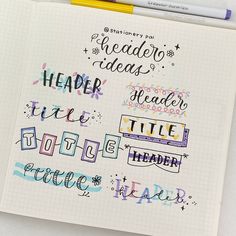 @Stationery pal
header
ideas
HEADER
Header
title
TITLE
TITLE
HEADER
title
header
HEADER